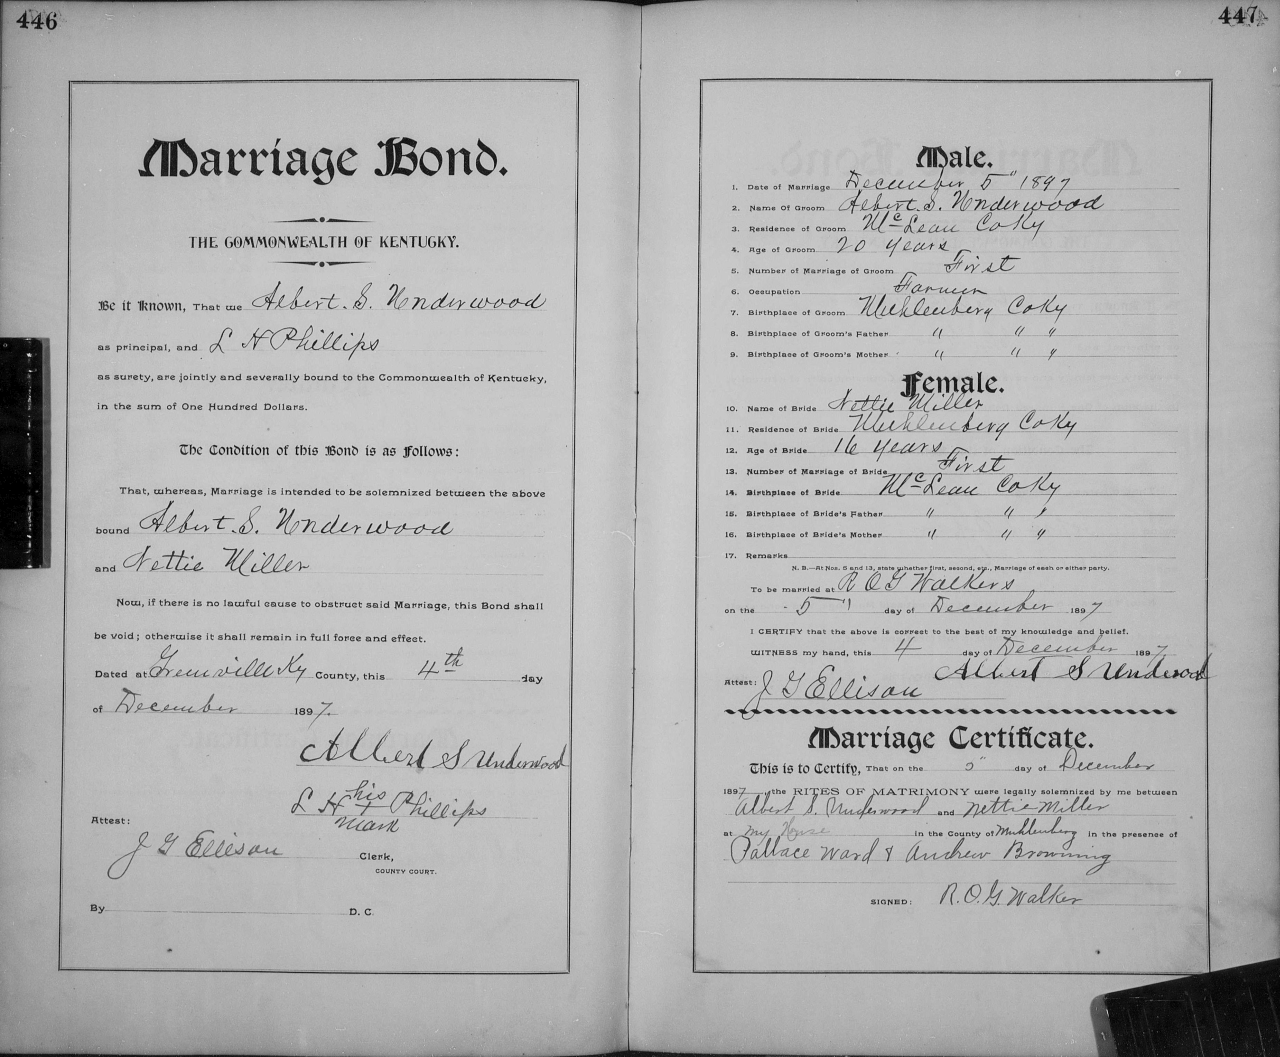 446
Marriage Bond.
THE COMMONWEALTH OF KENTUCKY.
Be it Known, That we Albert. S. Underwood
as principal, and L H Phillips
as surety, are jointly and severally bound to the Commonwealth of Kentucky,
in the sum of One Hundred Dollars.
The Condition of this Bond is as Follows:
That, whereas, Marriage is intended to be solemnized between the above
bound Albert. S. Underwood
and Nettie Miller
Now, if there is no lawful cause to obstruct said Marriage, this Bond shall
be void; otherwise it shall remain in full force and effect.
Dated at Greenville Ky County, this 4th day
of December 1897.
Albert S Underwood
L H his Phillips
mark
Attest:
J G Ellison Clerk,
COUNTY COURT.
By D. C.
447
Male.
1. Date of Marriage December 5" 1897
2. Name Of Groom Albert. S. Underwood
3. Residence of Groom McLean Co Ky
4. Age of Groom 20 years
5. Number of Marriage of Groom First
6. Occupation Farmer
7. Birthplace of Groom Muhlenberg Co Ky
8. Birthplace of Groom's Father " " "
9. Birthplace of Groom's Mother " " "
Female.
10. Name of Bride Nettie Miller
11. Residence of Bride Muhlenberg Co Ky
12. Age of Bride 16 years
13. Number of Marriage of Bride First
14. Birthplace of Bride McLean Co Ky
15. Birthplace of Bride's Father " " "
16. Birthplace of Bride's Mother " " "
17. Remarks
N. B.—At Nos. 5 and 13, state whether first, second, etc., Marriage of each or either party.
To be married at R O G Walkers
on the 5" day of December 1897
I CERTIFY that the above is correct to the best of my knowledge and belief.
WITNESS my hand, this 4 day of December 1897
Albert S Underwood
Attest: J G Ellison
Marriage Certificate.
This is to Certify, That on the 5" day of December
1897, the RITES OF MATRIMONY were legally solemnized by me between
Albert S. Underwood and Nettie Miller
at my House in the County of Muhlenberg in the presence of
Pallace Ward & Andrew Browning
SIGNED: R. O. G. Walker